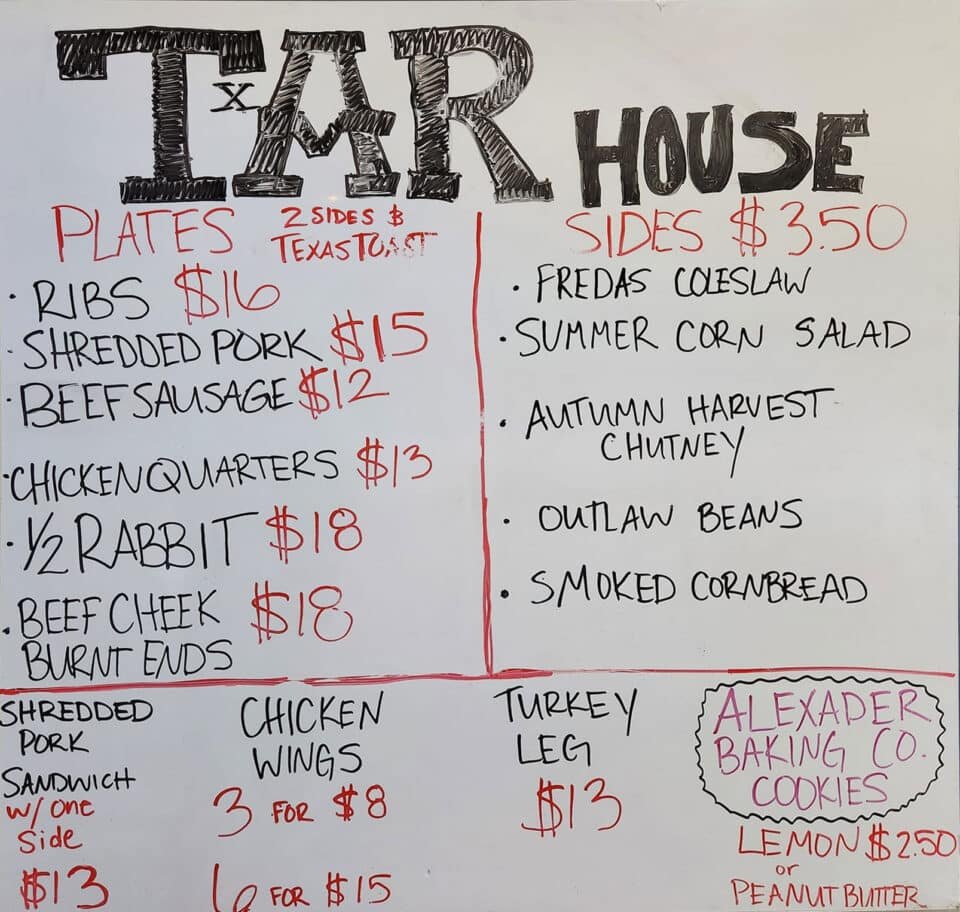 TxAR HOUSE
PLATES 2 SIDES &
TEXAS TOAST
· RIBS $16
· SHREDDED PORK $15
· BEEF SAUSAGE $12
· CHICKEN QUARTERS $13
· 1/2 RABBIT $18
· BEEF CHEEK $18
BURNT ENDS
SIDES $3.50
· FREDAS COLESLAW
· SUMMER CORN SALAD
· AUTUMN HARVEST
CHUTNEY
· OUTLAW BEANS
· SMOKED CORNBREAD
SHREDDED
PORK
SANDWICH
w/ one
Side
$13
CHICKEN
WINGS
3 FOR $8
6 FOR $15
TURKEY
LEG
$13
ALEXADER
BAKING CO.
COOKIES
LEMON $2.50
or
PEANUT BUTTER